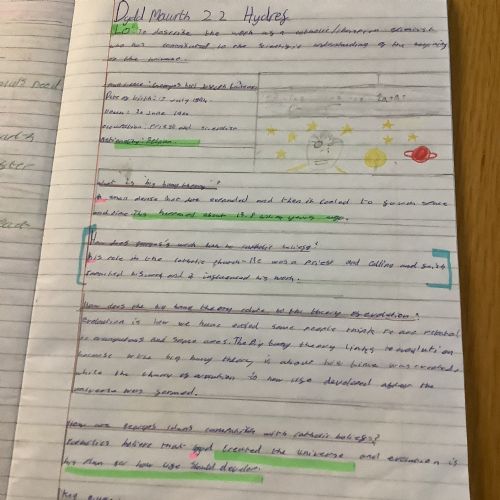 Dydd Mawrth 22 Hydref
LO: To describe the work of a catholic/christian scientist
who has contributed to the scientific understanding of the beginning
of the universe.
Full name: Georges
Date of birth: 17 July 1894
Death: 20 June 1966
occupation: Priest and scientist
Nationality: Belgian
What is big bang theory?
A small dense that has expanded and then it cooled to form space
and time. This happened about 13.8 billion years ago.
How does Georges's work link to catholic beliefs?
his role in the catholic church- He was a priest and calling and faith
his work and it influenced his work.
How does the big bang theory relate to the theory of evolution?
evolution is how we have some people think we are related
to and apes. The Big bang theory links to evolution
because the big bang theory is about how time was created,
while the theory of evolution is how life developed after the
universe was formed.
How are Georges ideas compatible with catholic beliefs?
Catholics believe that god created the universe and evolution is
his plan for how life should develop.